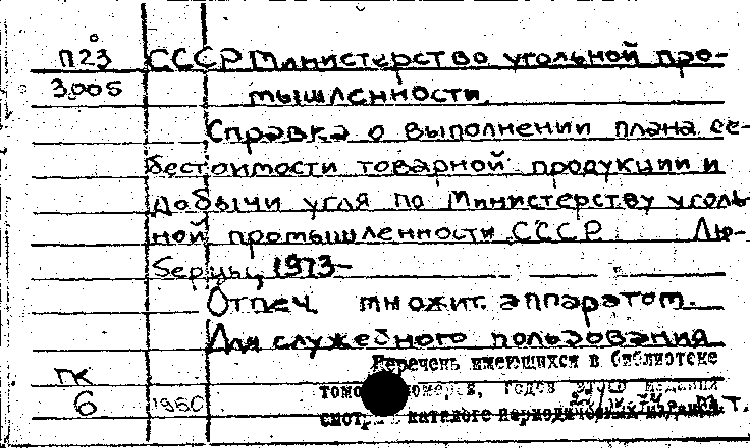 П23 СССР Министерство угольной про-
3.005 мышленности.
Справка о выполнении плана се-
бестоимости товарной продукции и
добычи угля по Министерству уголь-
ной промышленности СССР. Лю-
берцы, 1973-
Отпеч. множит. аппаратом.
Для служебного пользования
Перечень имеющихся в библиотеке
ПК томов, номеров, годов этого издания
6 1950 смотри в каталоге периодических изданий. п. т.